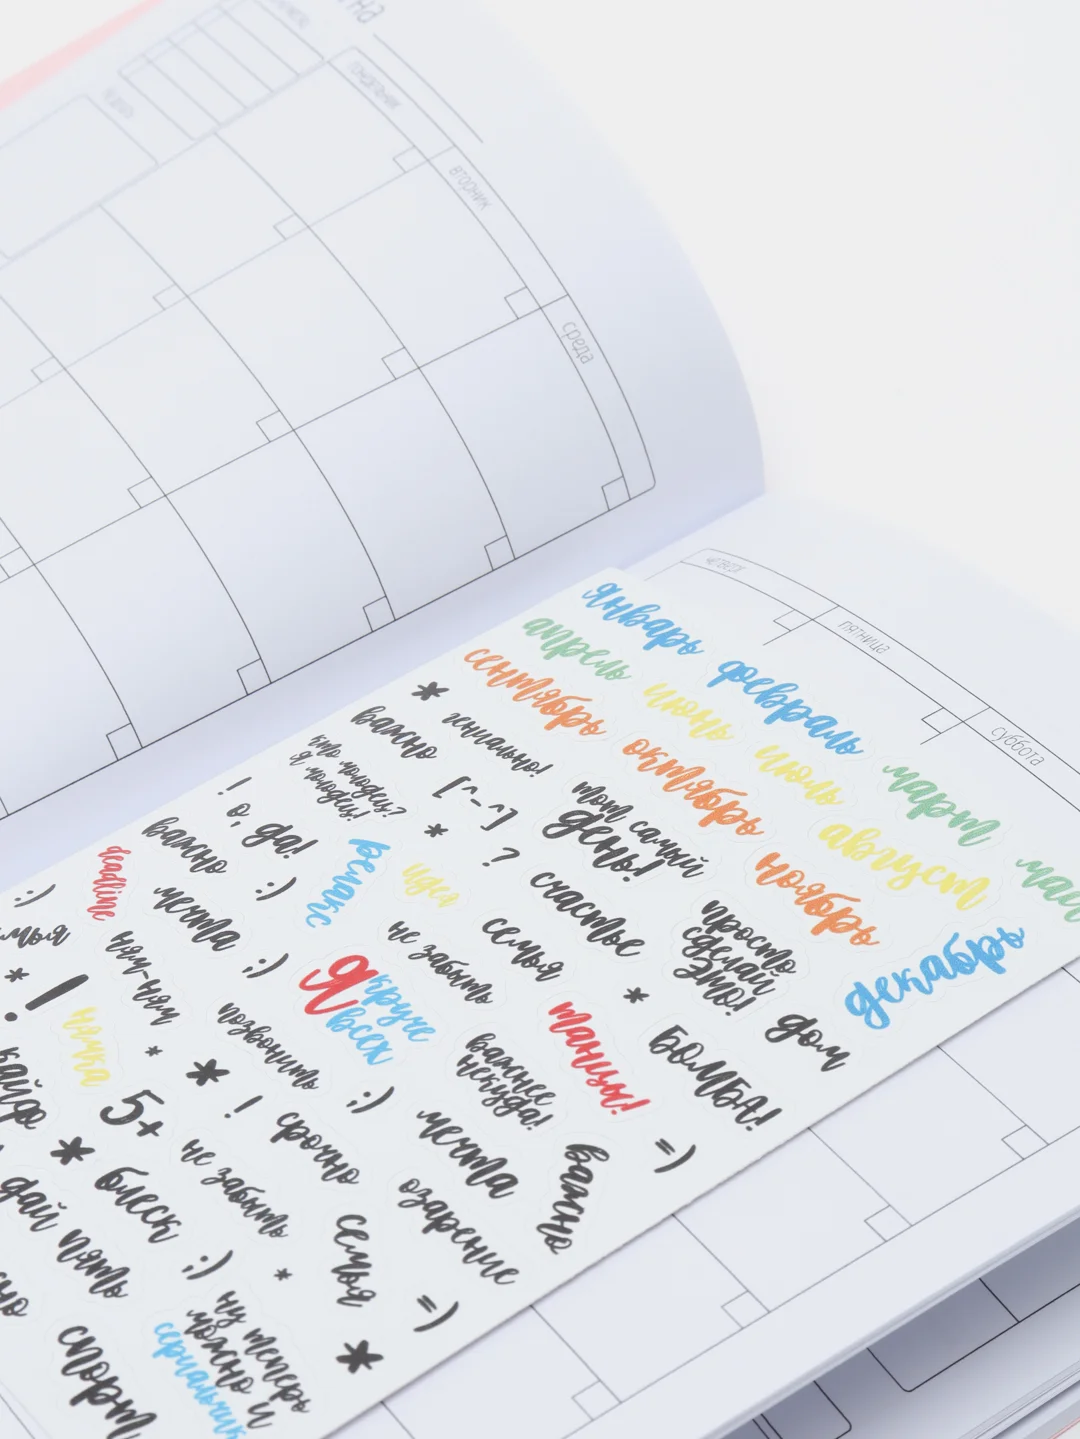 на
понедельник
вторник
среда
четверг
пятница
суббота
январь
февраль
март
апрель
июнь
июль
август
май
сентябрь
октябрь
ноябрь
декабрь
*
важно
гениально!
кто молодец?
я молодец!
[^-^]
*
?
тот самый
день!
!
о, да!
важно
:)
релакс
идея
счастье
просто
сделай
это!
дом
deadline
мечта
:)
не забыть
семья
*
БОМБА!
:)
*
ням-ням
Я
круче
всех
танцы!
!
нямка
*
позвонить
*
:)
важнее
некуда!
=)
кайф
5+
!
срочно
мечта
важно
*
блеск
не забыть
озарение
дай пять
:)
*
семья
=)
*
спорт
ну теперь
можно и